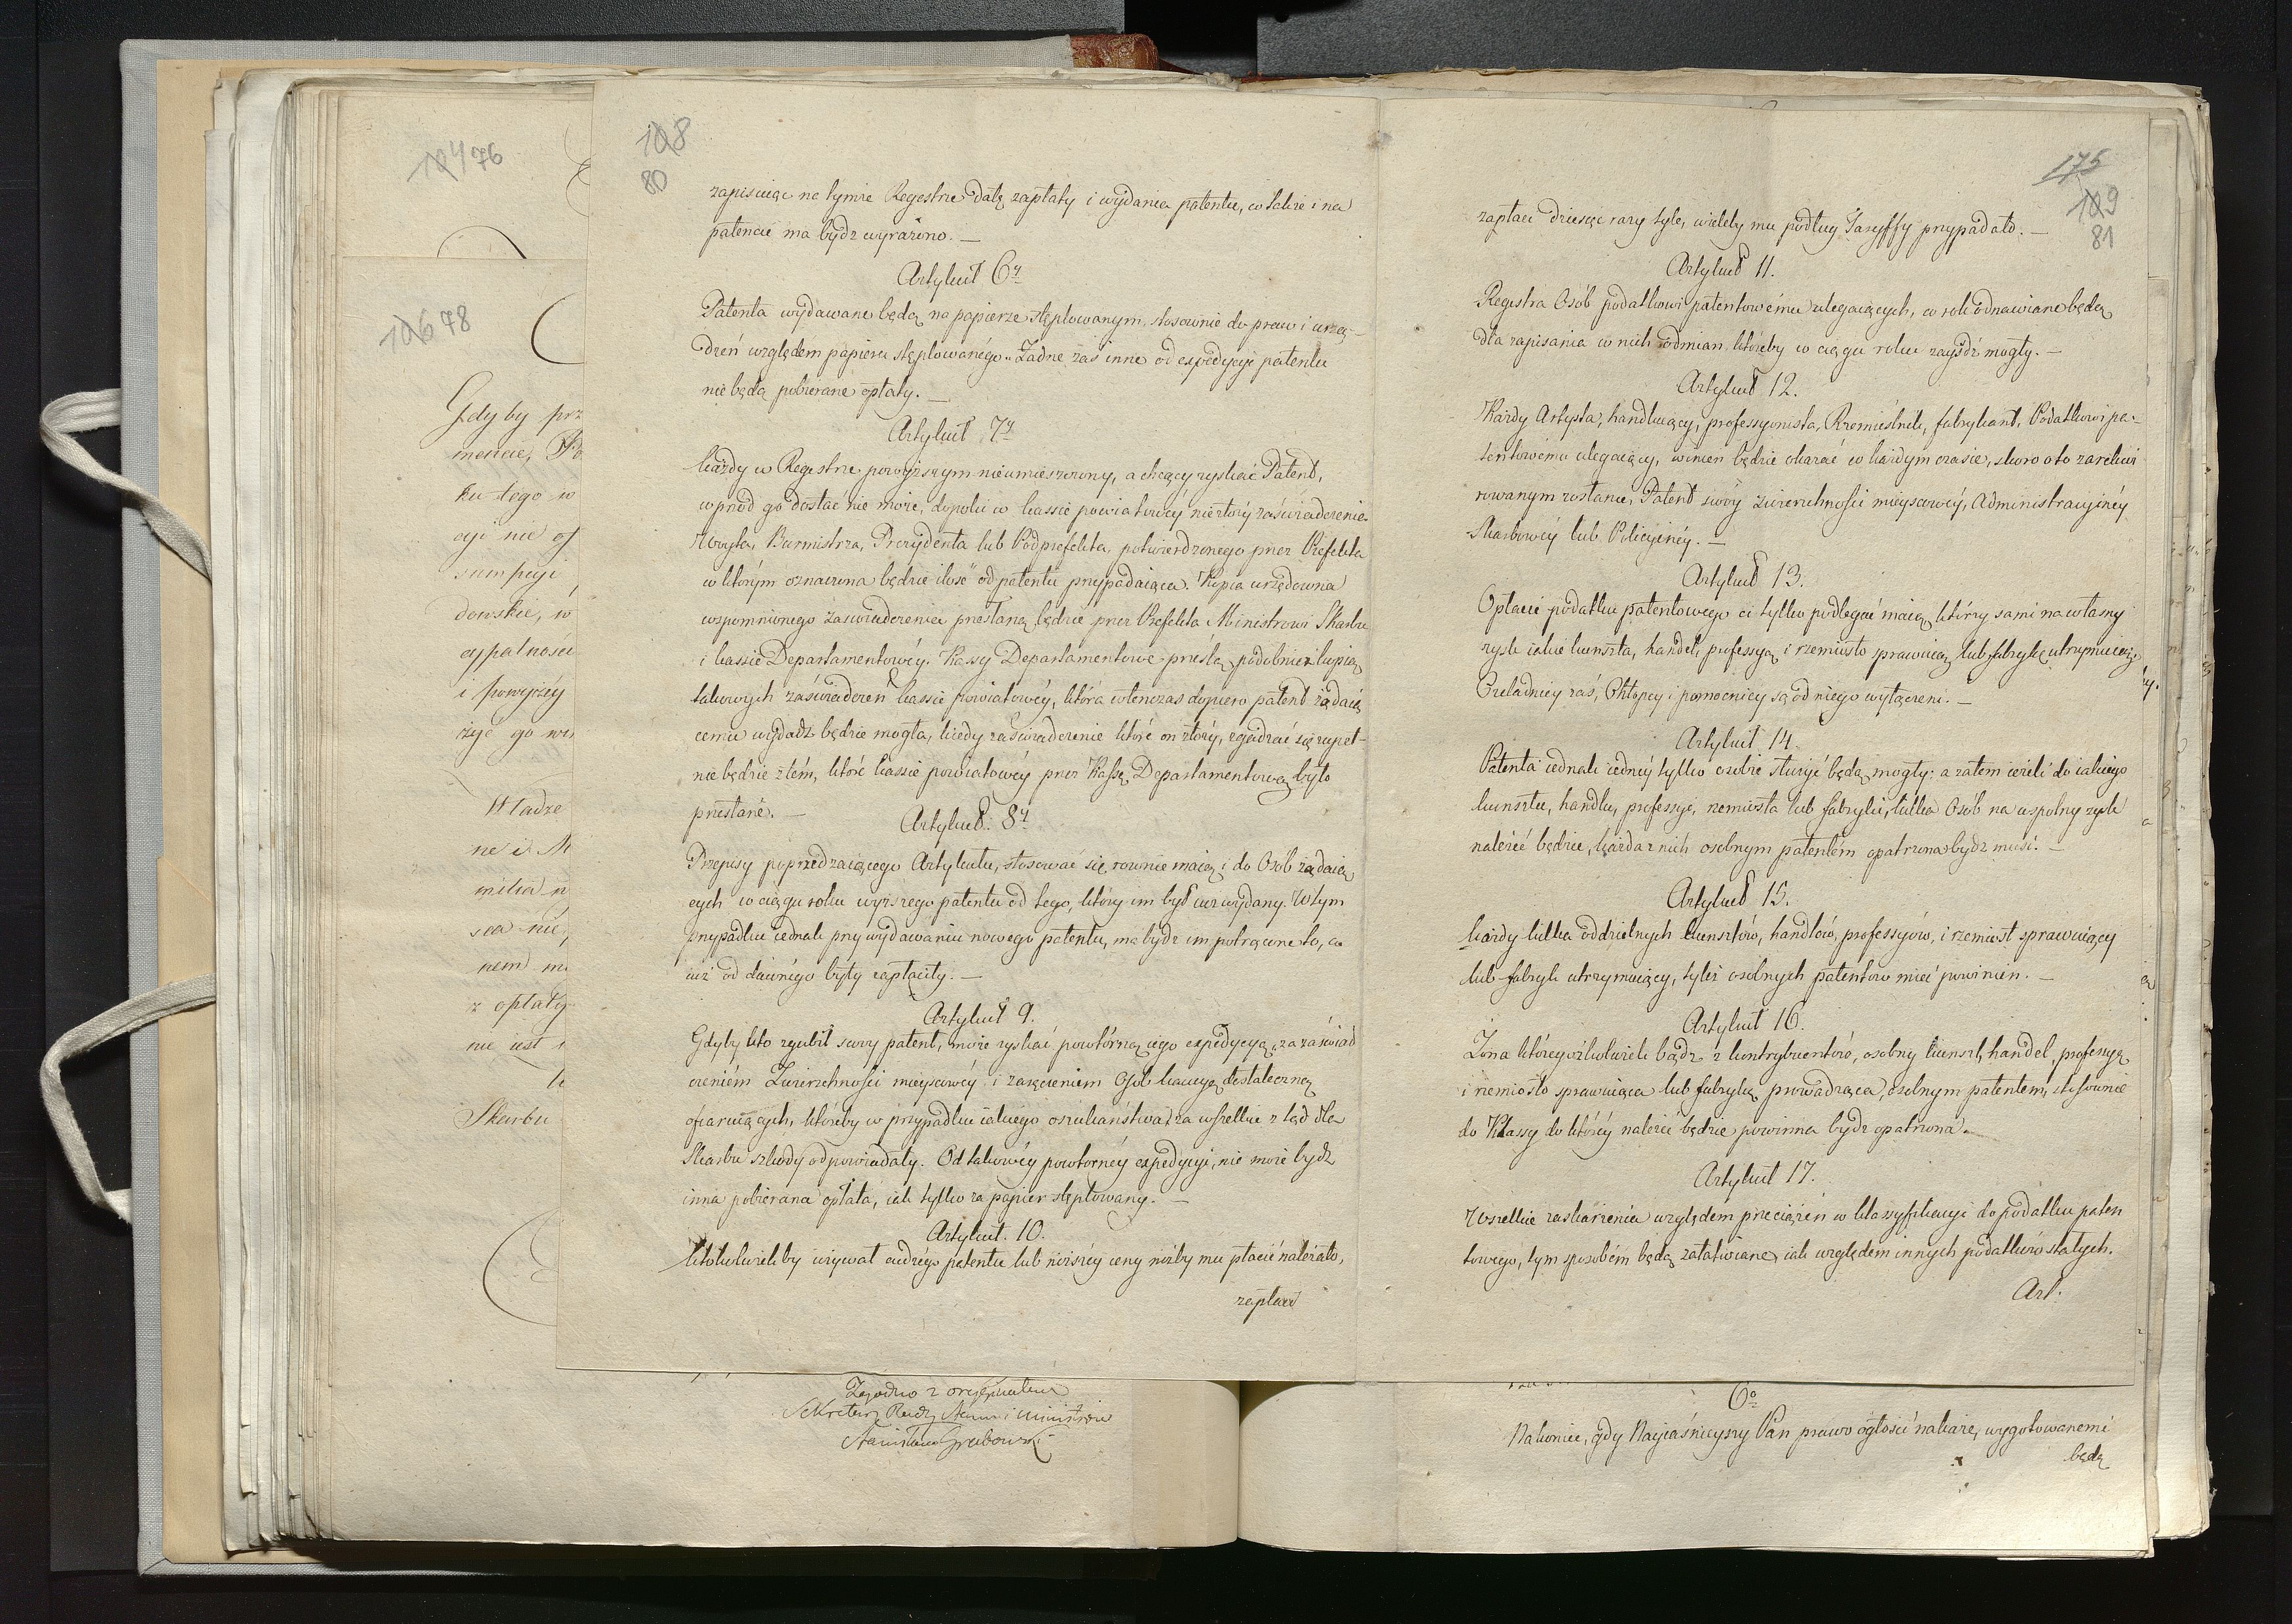 104 76
106 78
Gdyby prz
mencie, Po
ku tego w
cyi nie of
sumpcyi
dowskie, w
cypalności
i powyżéy
życ go wi
Władze
ne i M
milia n
sca nie,
nem mi
z opłaty
nie iest
Skarbu
108
80
zapisuiąc na tymże Regestrze datę zapłaty i wydania patentu, co także i na
patencie ma bydz wyrażono. —
Artykuł 6ty
Patenta wydawane będą na papierze stęplowanym, stosownie do praw i urzą-
dzeń względem papieru stęplowanégo. Żadne zaś inne od expedycyi patentu
nie będą pobierane opłaty. —
Artykuł 7y
Każdy w Regestrze powyższym nieumieszczony, a chcący zyskać Patent,
wprzód go dostać nie może, dopoki w kassie powiatowéy nie złoży zaświadczenie
Woyta, Burmistrza, Prezydenta lub Podprefekta, potwierdzonego przez Prefekta
w którym oznaczona będzie ilość od patentu przypadaiąca. Kopia urzędowna
wspomnionego zaświadczenia przesłaną będzie przez Prefekta Ministrowi Skarbu
i kassie Departamentowéy. Kassy Departamentowe prześlą podobnież kopią
takowych zaświadczeń kassie powiatowéy, która wtenczas dopiero patent żądaią
cemu wydadź będzie mogła, kiedy zaświadczenie które on złoży, zgadzać się zupeł-
nie będzie z tém, które kassie powiatowéy przez Kassę Departamentową było
przesłané. —
Artykuł. 8y
Przepisy poprzedzaiącego Artykułu, stosować się rownie maią i do Osób żądaią
cych w ciągu roku wyższego patentu od tego, który im był iuż wydany. W tym
przypadku iednak przy wydawaniu nowego patentu, ma bydz im potrącone to, co
iuż od dawnégo były zapłaciły. —
Artykuł 9.
Gdyby kto zgubił swoy patent, może zyskać powtórną iego expedycyą, za zaświad
czeniém Zwierzchności mieyscowéy i zaręczeniem Osób kaucyą dostateczną
ofiaruiących, któreby w przypadku iakiego oszukaństwa, za wszelkie z tąd dla
Skarbu szkody odpowiadały. Od takowéy powtórnéy expedycyi, nie może bydź
inna pobierana opłata, iak tylko za papier stęplowany. —
Artykuł. 10.
Ktokolwiek by używał cudzégo patentu lub niższéy ceny niżby mu płacić należało,
zapłaci
175
109
81
zapłaci dziesięc razy tyle, wieleby mu podług Taryffy przypadało. —
Artykuł 11.
Regestra Osób podatkowi patentowému ulegaiących, co rok odnawiane będą
dla zapisania w nich odmian któreby w ciągu roku zayśdź mogły. —
Artykuł 12.
Każdy Artysta, handluiący, professyonista, Rzemieślnik, fabrykant, Podatkowi pa-
tentowému ulegaiący, winien będzie okazać w każdym czasie, skoro oto zarekwi
rowanym zostanie, Patent swóy zwierzchności mieyscowéy, Administracyinéy
Skarbowéy lub Policyinéy. —
Artykuł 13.
Opłacie podatku patentowego ci tylko podlegać maią, którzy sami na własny
zysk iakie kunszta, handel, professyą i rzemiosło sprawuią, lub fabrykę utrzymuią.
Czeladnicy zaś, Chłopcy i pomocnicy są od niego wyłączeni. —
Artykuł 14.
Patenta iednak iednéy tylko osobie służyć będą mogły: a zatem ieżeli do iakiego
kunsztu, handlu, professyi, rzemiosła lub fabryki, kilka Osób na wspolny zysk
należeć będzie, każda z nich osobnym patentém opatrzona bydz musi. —
Artykuł 15.
Każdy kilka oddzielnych kunsztów, handlów, professyów, i rzemiosł sprawuiący
lub fabryk utrzymuiący, tyleż osobnych patentow mieć powinien. —
Artykuł 16.
Żona któregożkolwiek bądz z kontrybuentów, osobny kunszt, handel, professyą
i rzemiosło sprawuiąca lub fabrykę prowadząca, osobnym patentem, stosownie
do Klassy do któréy należeć będzie powinna bydz opatrzona. —
Artykuł 17.
Wszelkie zaskarżenia względem przeciążeń w klassyfikacyi do podatku paten
towego, tym sposobém będą załatwiane, iak względem innych podatków stałych.
Art.
Zgodno z oryginałem
Sekretarz Rady Stanu i Ministrów
Stanisław Grabowski
6o
Nakoniec, gdy Nayiaśnieyszy Pan prawo ogłosić nakaże, wygotowanemi
będą